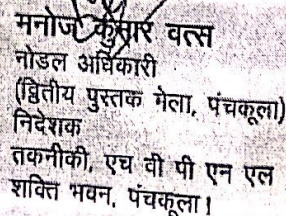 मनोज कुमार वत्स
नोडल अधिकारी
(द्वितीय पुस्तक मेला, पंचकूला)
निदेशक
तकनीकी, एच वी पी एन एल
शक्ति भवन, पंचकूला।